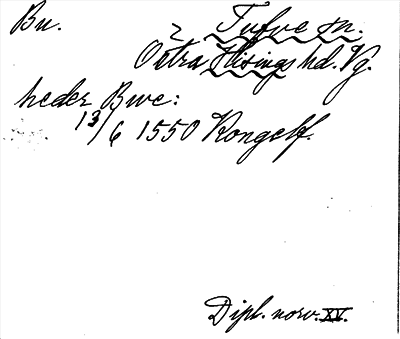 Bu. 2 Tufve sn.
Östra Hisings hd. Vg.
heder Bwe:
13/6 1550 Kongelf.
Dipl. norv. XV.